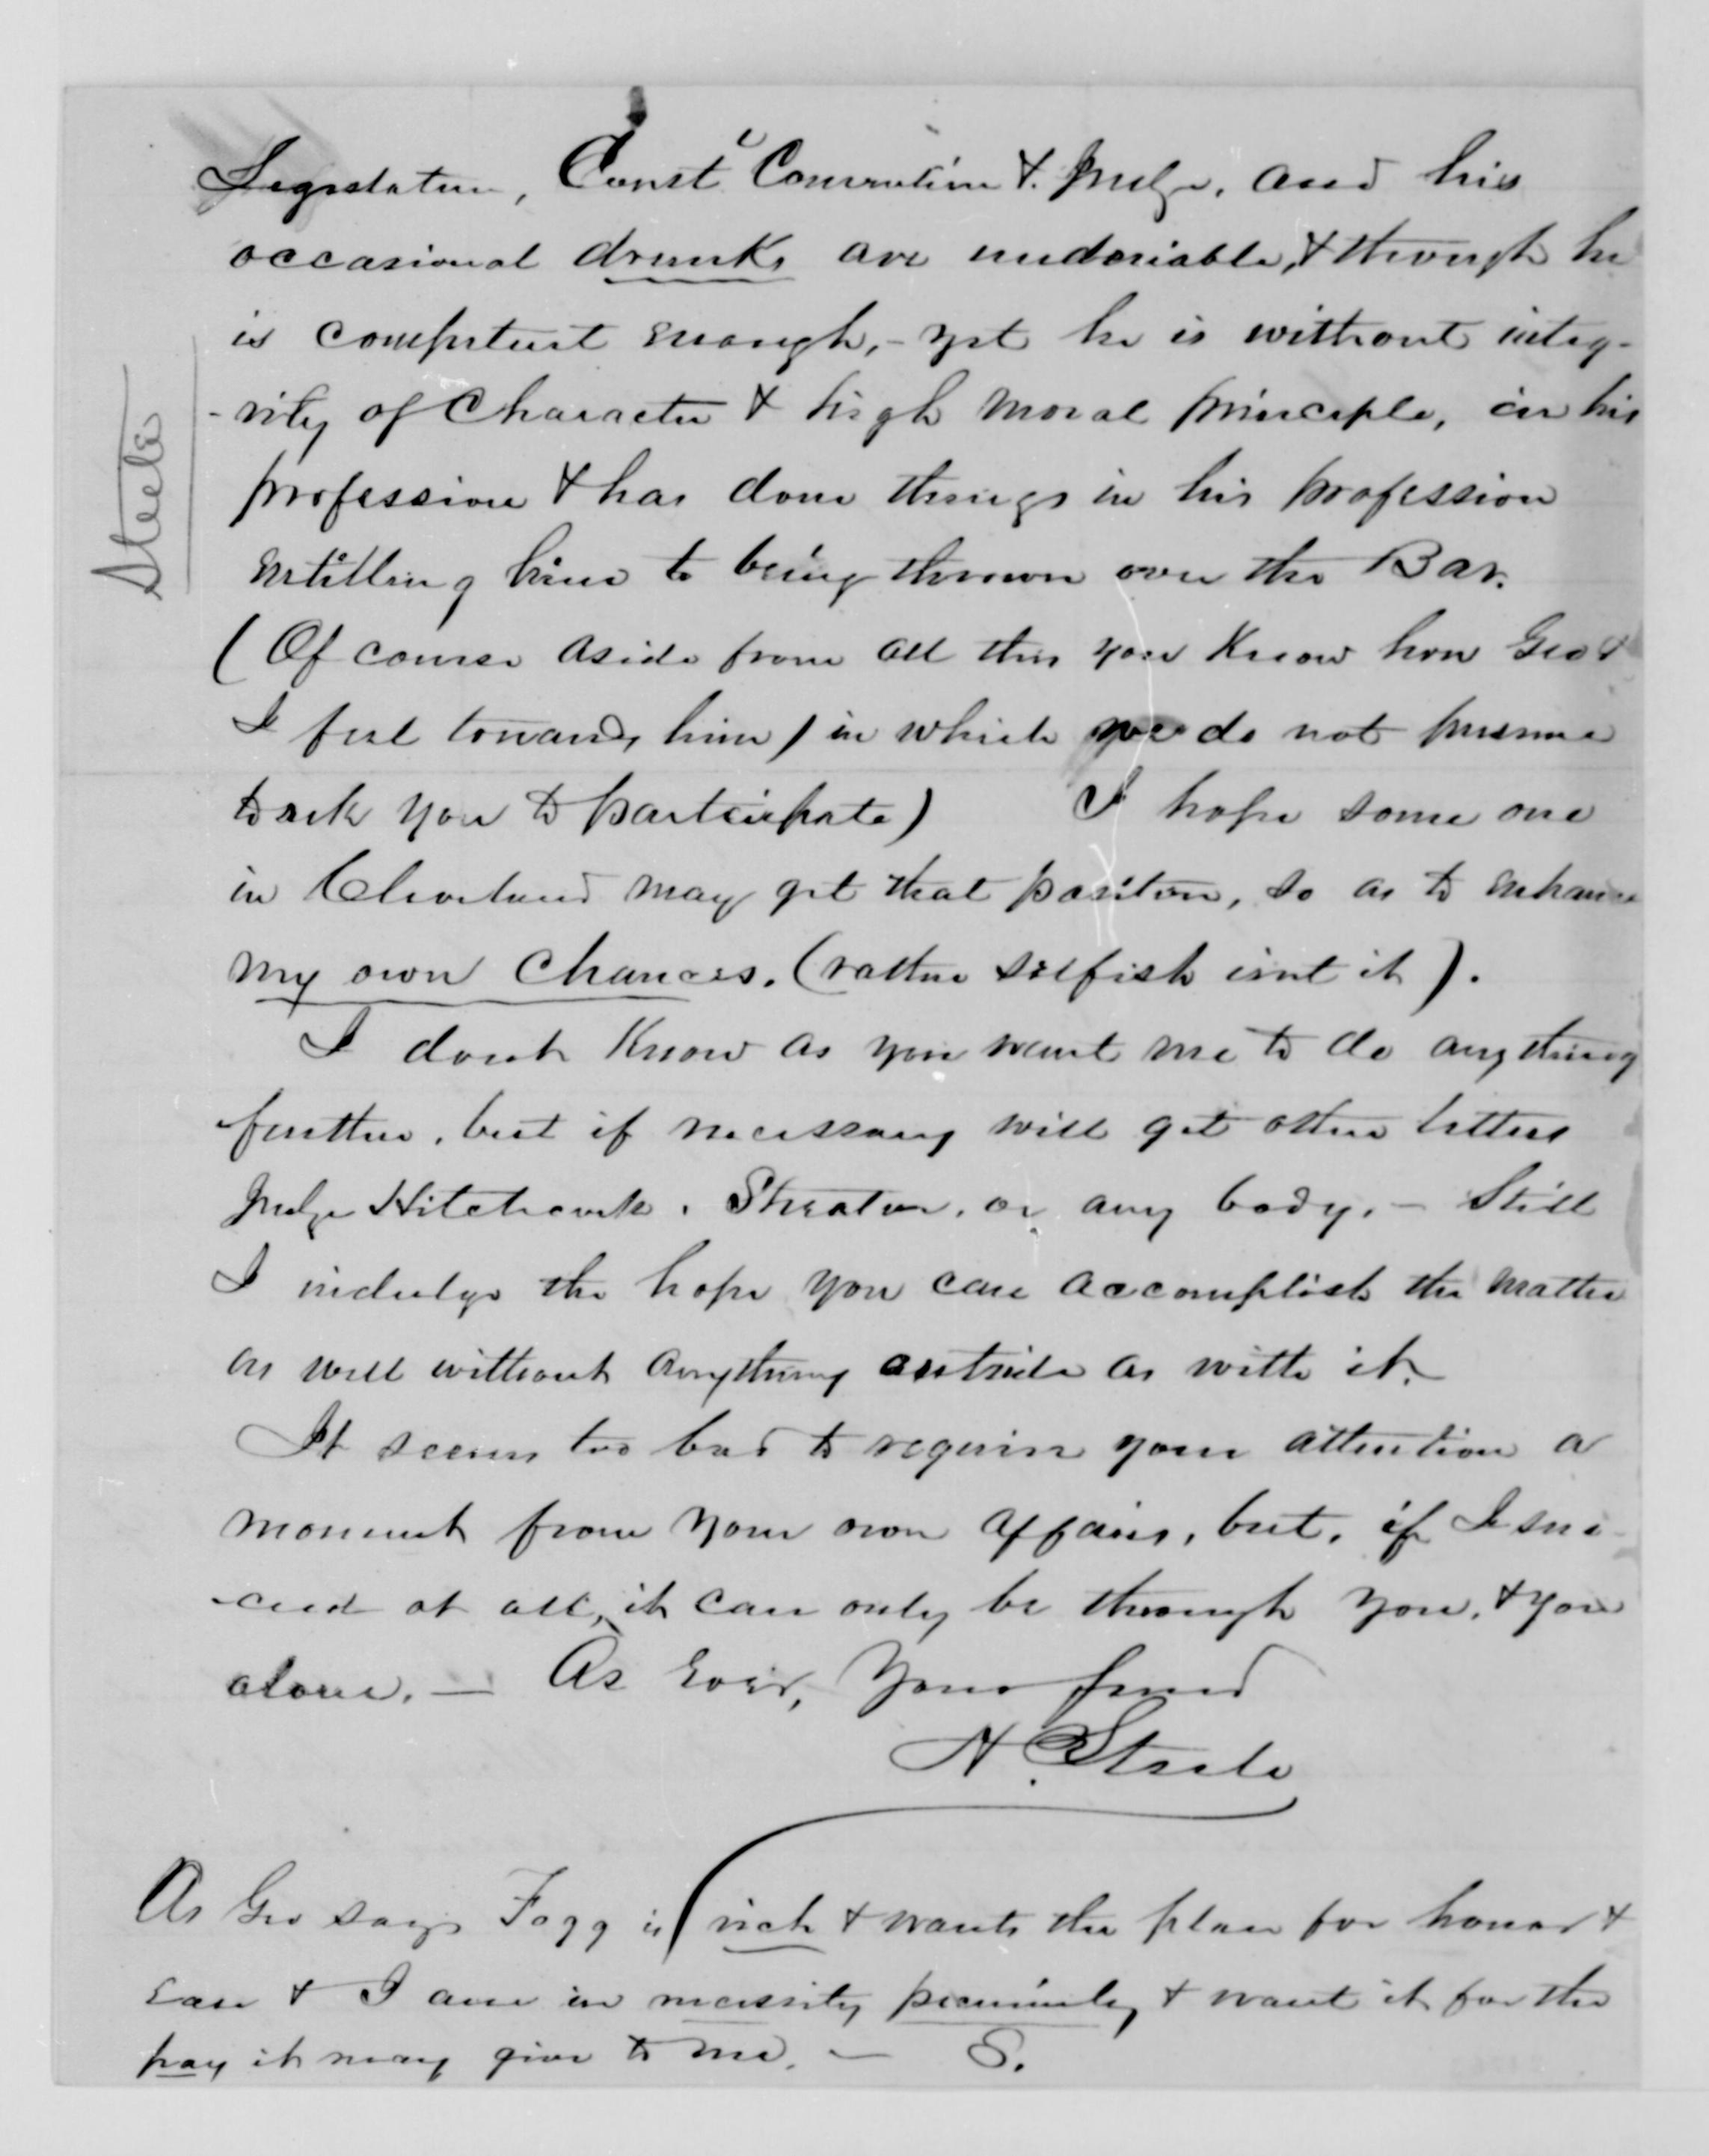 Legislature, Const'l Convention & Judge, and his
occasional drunks are undeniable, & though he
is competent enough, - yet he is without integ-
-rity of Character & high moral principle, in his
profession & has done things in his profession
entitling him to being thrown over the Bar.
(Of course aside from all this you Know how Geo &
I feel towards him) in which we do not presume
to ask you to participate) I hope some one
in Cleveland may get that position, so as to enhance
my own Chances. (rather selfish isnt it).
I dont Know as you want me to do anything
further, but if necessary will get other letters
Judge Hitchcock, Streator, or any body, - Still
I indulge the hope you can accomplish the matter
as well without anything outside as with it.
It seems too bad to require your attention a
moment from your own affairs, but, if I suc-
-ceed at all, it can only be through you, & you
alone. — As Ever, Your friend
H. Steele
As Geo says Fogg is rich & wants the place for honor &
Ease & I am in necessity pecuniarly & want it for the
pay it may give to me. — S.
Steele